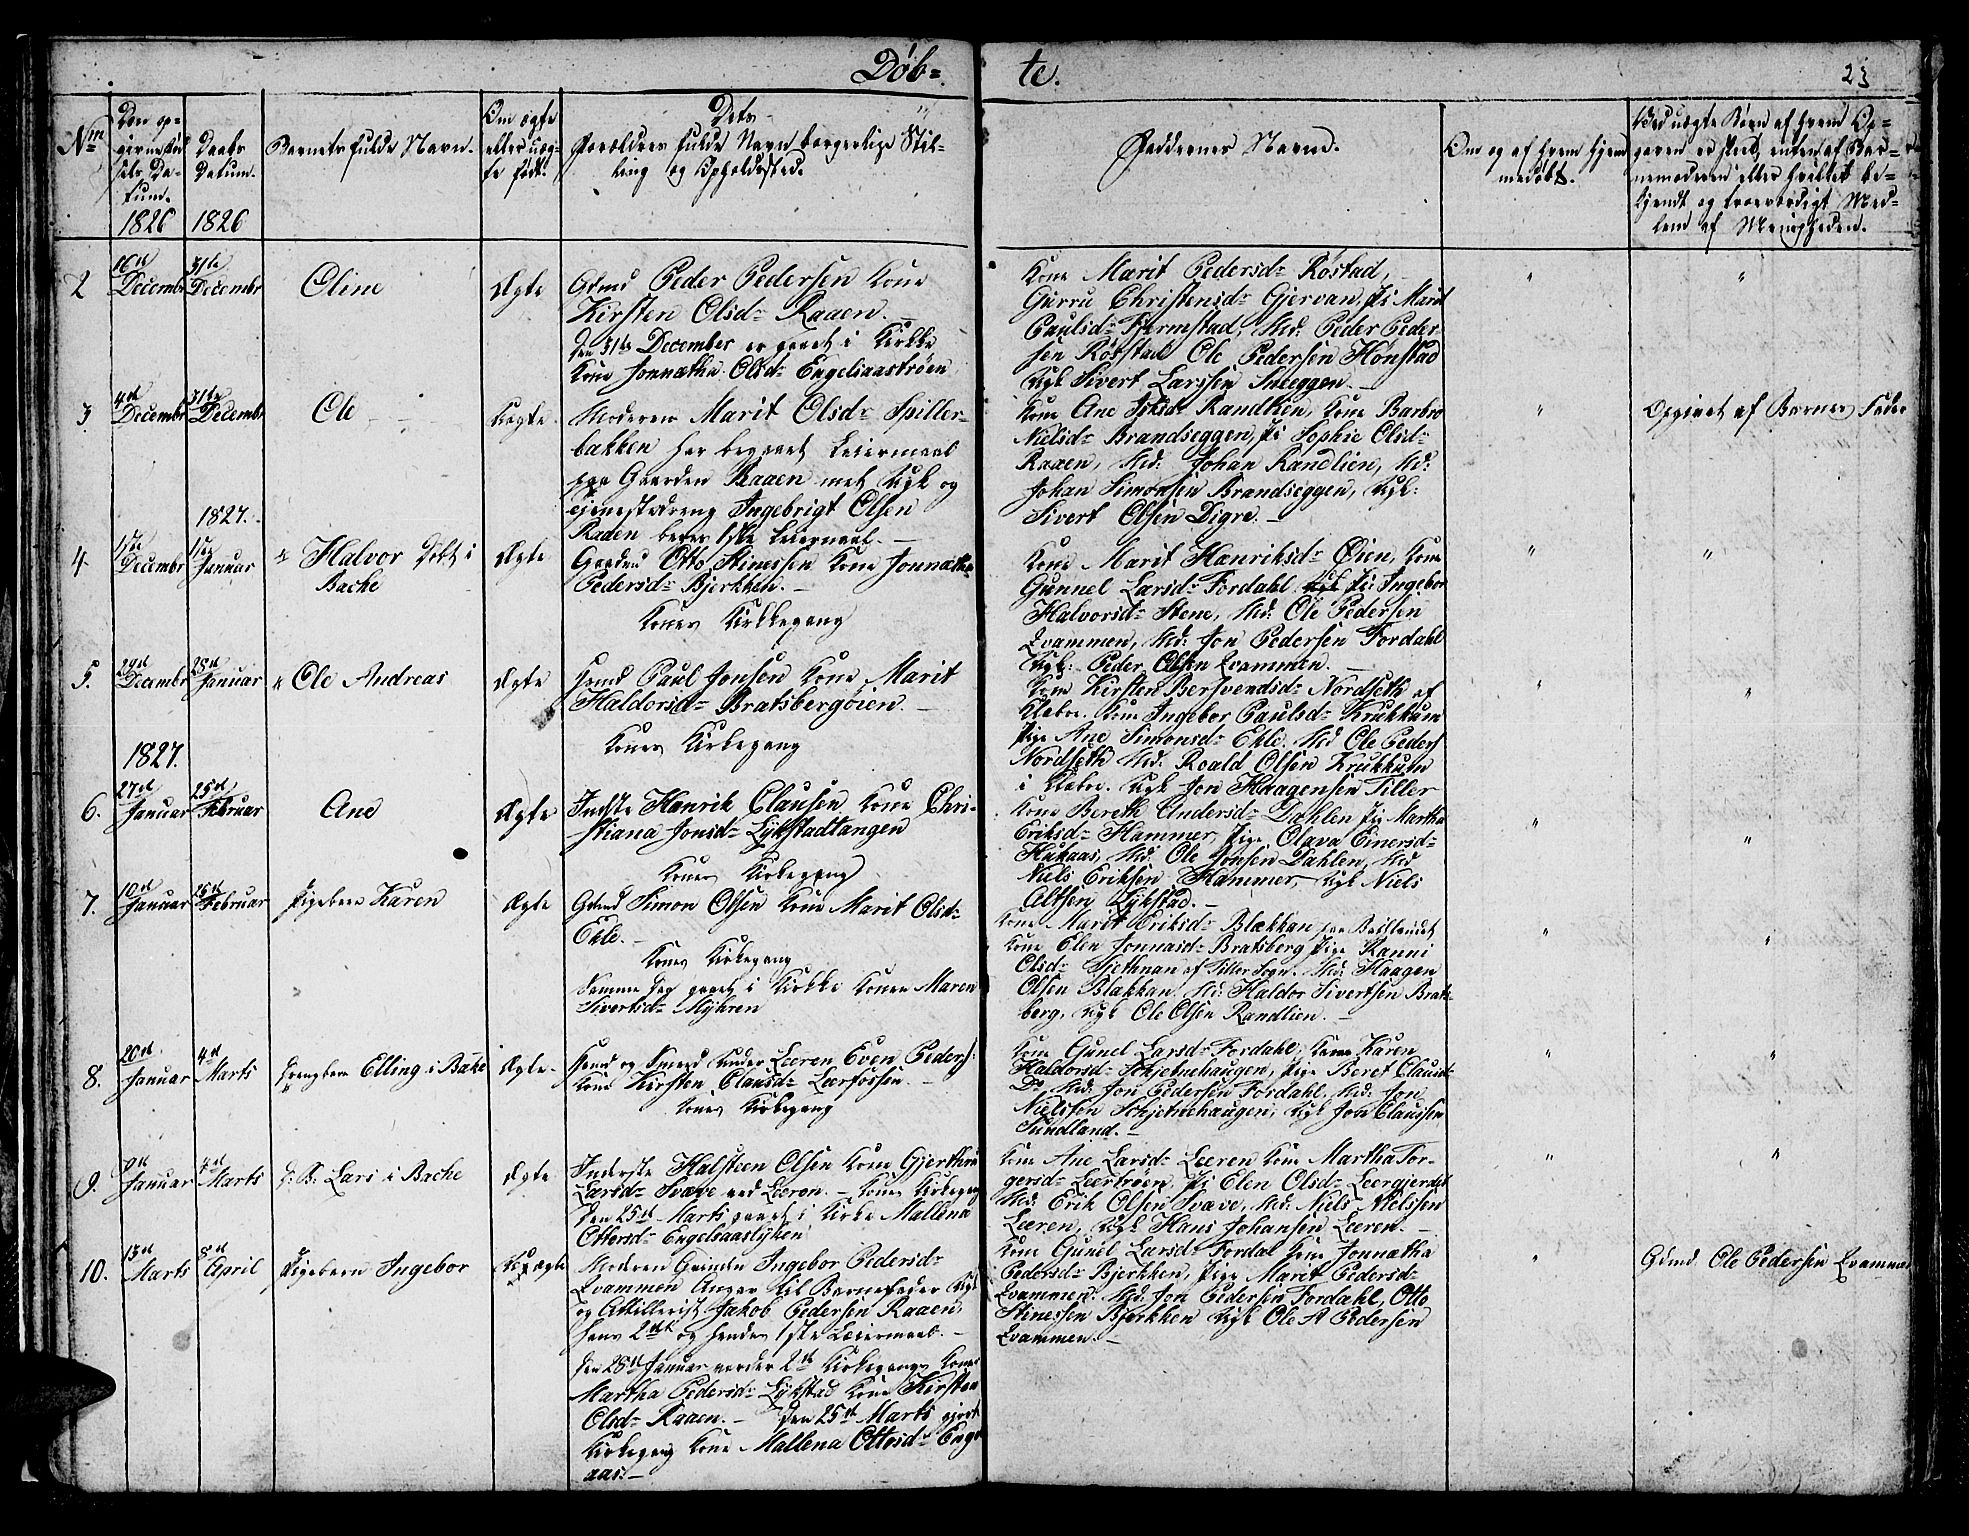 Døb=
te.
23
Nm
Den op-
givne Fød
sels Da-
tum.
1826
Daabs
Datum.
1826
Barnets fulde Navn.
Om ægte
eller uæg-
te født.
Dets
Forældres fulde Navn borgerlige Stil-
ling og Opholdssted.
Faddernes Navne.
Om og af hvem hjem
medøbt.
Ved uægte Børn af hvem Op-
gaven er skeet, enten af Bar-
nemoderen eller hvilket be-
kjendt og troeværdigt Med-
lem af Menigheden.
2
10de
Decembr
31te
Decembr
Oline
Ægte
Gdmd Peder Pedersen Kone
Kirsten Olsd= Raaen.—
Den 31te December er gaaet i Kirkke
Kone Jonnatha Olsd= Engelsaastrøen
Kone Marit Pedersd= Røstad,
Gurru Christensd= Gjervan, Pi Marit
Paulsd= Fjermstad, Md: Peder Peder-
sen Røstad Ole Pedersen Hønstad
Ugk Sivert Larssen Sneeggen.—
3
4de
Decembr
31te
Decembr
Ole
Uægte
Moderen Marit Olsd= Spiller-
bakken har begaaet Leiermaal
paa Gaarden Raaen met Ugk og
Tjenestedreng Ingebrigt Olsen
Raaen begges 1ste Leiermaal.—
Kone Ane Johsd= Randlien, Kone Barbro
Nielsd= Brandseggen, Pi Sophie Olsd=
Raaen, Md: Johan Randlien, Md:
Johan Simonsen Brandseggen, Ugk:
Sivert Olsen Digre.—
Opgivet af Barnes Fader
1827.
4
11te
Decembr
11te
Januar
Halvor Døbt i
Bache
Ægte
Otto Stinessen Kone Jonnatha
Pedersd= Bjerkhen.—
Kones Kirkkegang
Kone Marit Hanriksd= Øien, Kone
Gunnel Larsd= Fordahl Pi: Ingebor
Halvorsd= Stene, Md: Ole Pedersen
Qvammen, Md: Jon Pedersen Fordahl
Ugk: Peder Olsen Qvammen.—
5.
29de
Decembr
28de
Januar
Ole Andreas
Ægte
Paul Jonsen Kone Marit
Haldorsd= Bratsbergøien.—
Kones Kirkegang
Kone Kirsten Bersvendsd= Nordseth af
Klæbo. Kone Ingebor Paulsd= Krukkum
Pige Ane Simonsd= Ekle. Md Ole Peders
Nordseth Md. Roald Olsen Krukkum
i Klæbo. Ugk Jon Haagensen Tiller
1827.
6.
27de
Januar
25de
Februar
Ane
Ægte
Inderste Hanrik Clausen Kone Chri-
stiana Jonsd= Lykstadtangen
Kones Kirkegang
Kone Bereth Andersd= Dahlen Pig Martha
Eriksd= Hammer, Pige Olava Einersd=
Hukaas, Md: Ole Jonsen Dahlen, Md
Niels Eriksen Hammer, Ugk Niels
Altsen Lykstad.—
7.
10de
Januar
25de
Februar
Pigebarn Karen
Ægte
Gdmd Simon Olsen Kone Marit Olsd=
Ekle.—
Kones Kirkegang
Samme Dag gaaet i Kirkke Konen Maren
Sivertsd= Myhren
Kone Marit Eriksd= Blækkan
Kone Elen Jonnasd= Bratsberg Pige Ranni
Olsd= Sjethnan af Tiller Sogn. Md: Haagen
Olsen Blækkan. Md: Haldor Sivertsen Brats-
berg, Ugk Ole Olsen Randlien.—
8.
20de
Januar
4de
Marts
Drengbarn Elling i Bake
Ægte.
og Smed under Leeren Even Peders:
Kone Kirsten Clausd= Leerfossen.—
Kones Kirkegang
Kone Gunel Larsd= Fordahl, Kone Karen
Haldorsd= Schjetnehaugen, Pige Beret Clausd=
Do Md: Jon Pedersen Fordahl. Md: Jon
Nielssen Schjetnehaugen, Ugk Jon Claussen
Sundland.—
9.
9de
Januar
4de
Marts
D: B. Lars i Bache
Ægte
Inderste Halsteen Olsen Kone Gjerthru
Larsd= Svæve ved Leeren.— Kones Kirkegang
Den 25de Marts gaaet i Kirke Mallena
Ottersd= Engelsaaslykken
Kone Ane Larsd= Leeren Kone Martha Tor-
gersd= Leertrøen, Pi Elen Olsd= Leergjerdet
Md: Erik Olsen Svæve, Md: Niels Nielssen
Leeren, Ugk Hans Johansen Leeren.—
10.
13de
Marts
8de
April
Pigebarn Ingebor
Uægte
Moderen Ingebor Pedersd=
Qvammen Angav til Barnefader Ugk
og Attillerist Jakob Pedersen Raaen,
hans 2det og hendes 1ste Leiermaal.—
Den 28de Januar 2de Kirkegangs Koner
Martha Pedersd= Lykstad Kone Kirsten
Olsd= Raaen.— Den 25de Marts gjort
Kirkegang Kone Mallena Ottosd= Engs
aas.—
Kone Gunel Larsd= Fordal Kone Jonnatha
Pedersd= Bjerkhen, Pige Marit Pedersd=
Qvammen. Md: Jon Pedersen Fordahl, Otto
Stinessen Bjerkhen Ugk Ole A Pedersen
Qvammen.—
Gdmd Ole Pedersen Qvammen